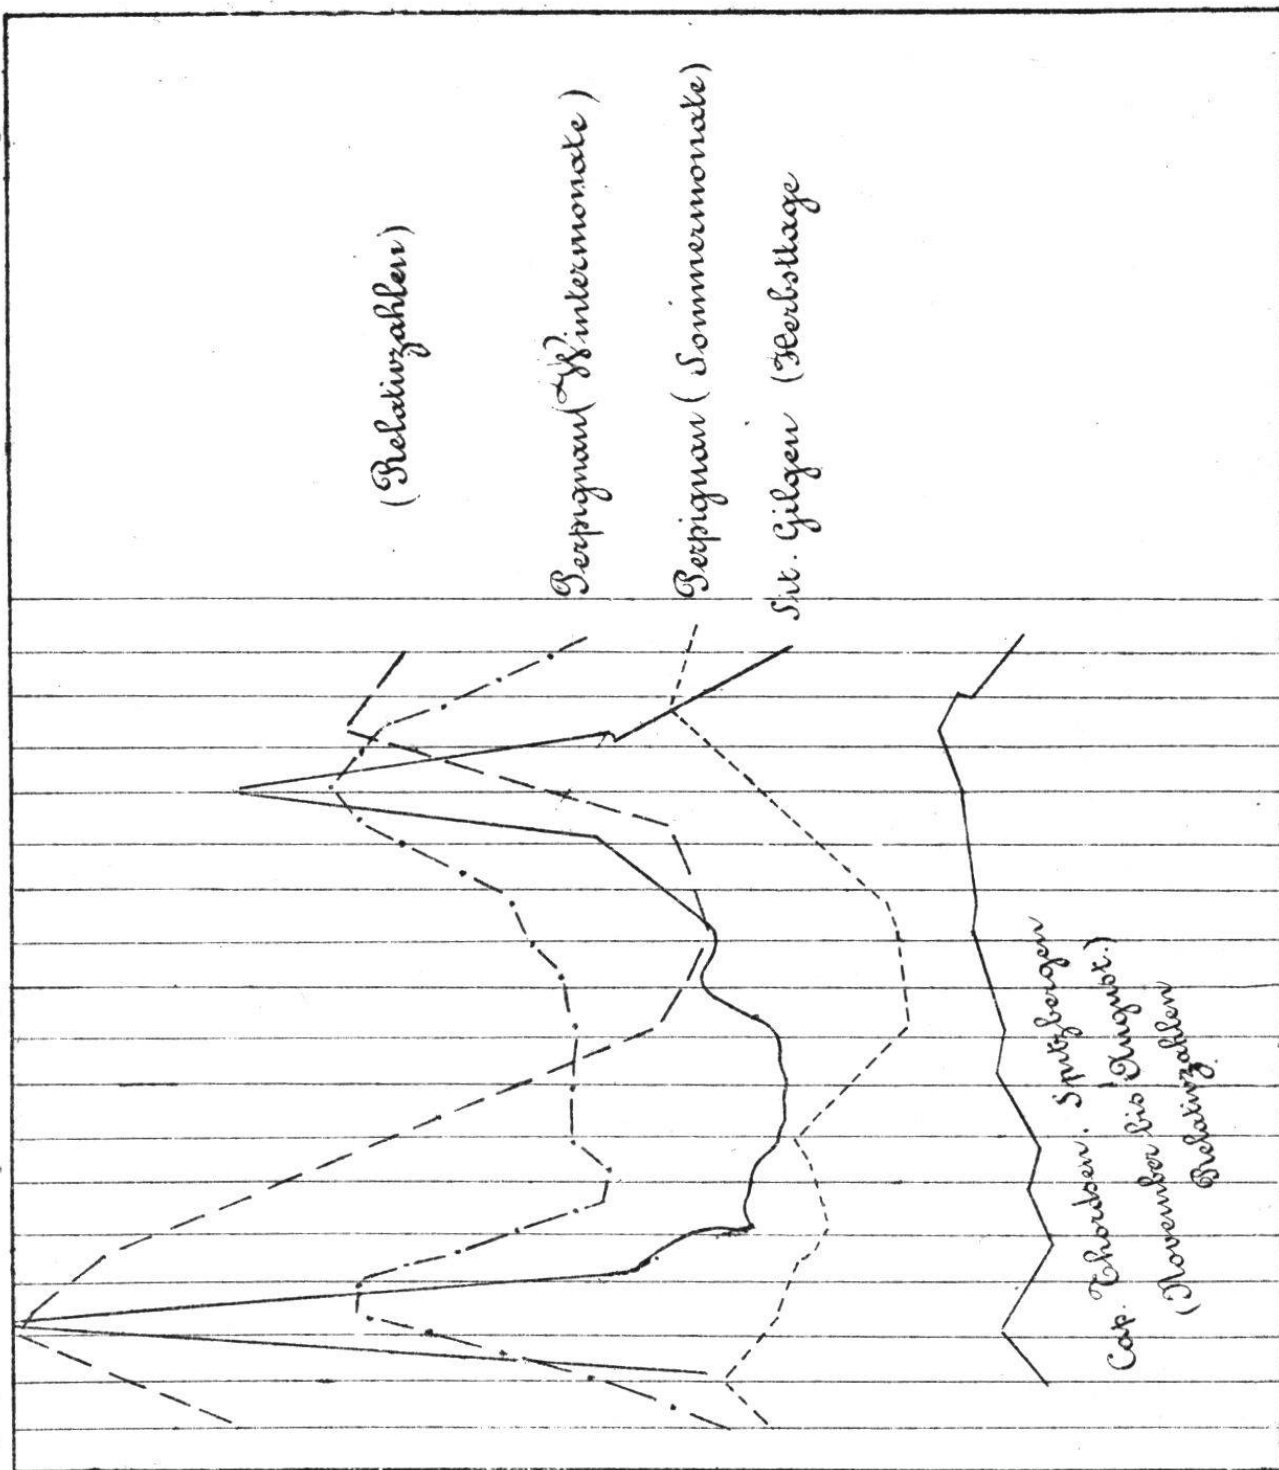 (Relativzahlen)
Perpignan (Wintermonate)
Perpignan (Sommermonate)
Skt. Gilgen (Herbsttage
Cap. Thordsen. Spitzbergen
(November bis August.)
Relativzahlen